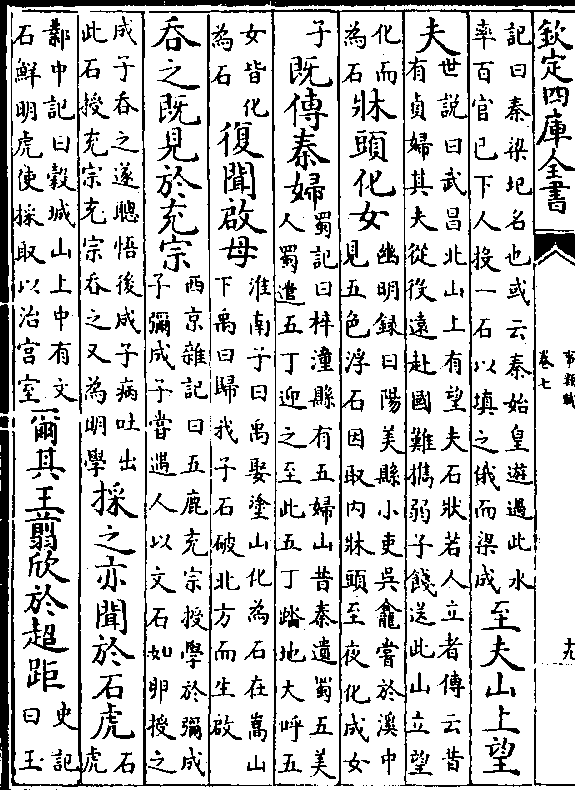 欽定四庫全書
事類賦
卷七
九
記曰秦梁圯名也或云秦始皇遊過此水
率百官已下人投一石以填之俄而梁成至夫山上望
夫世說曰武昌北山上有望夫石狀若人立者傳云昔
有貞婦其夫從役遠赴國難攜弱子餞送此山立望
化而
為石牀頭化女幽明錄曰陽羡縣小吏吳龕嘗於溪中
見五色浮石因取内牀頭至夜化成女
子既傳秦婦蜀記曰梓潼縣有五婦山昔秦遺蜀五美
人蜀遣五丁迎之至此五丁踏地大呼五
女皆化
為石復聞啟母淮南子曰禹娶塗山化為石在嵩山
下禹曰歸我子石破北方而生啟
吞之既見於充宗西京雜記曰五鹿充宗授學於彌成
子彌成子嘗遇人以文石如卵授之
成子吞之遂聰悟後成子病吐出
此石授充宗充宗吞之又為明學採之亦聞於石虎石虎
鄴中記曰穀城山上中有文
石鮮明虎使採取以治宫室爾其王翦欣於超距史記
曰王